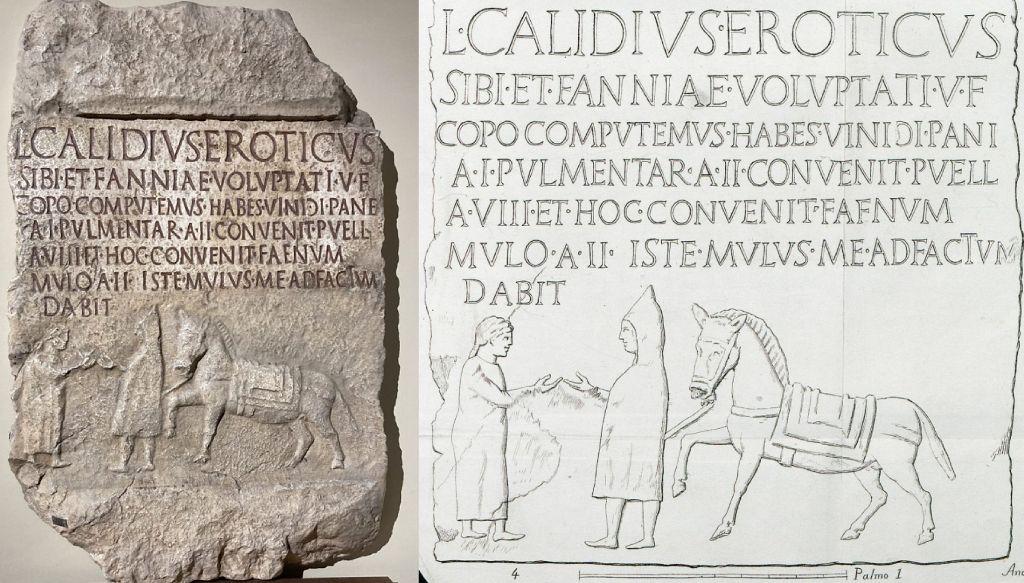 L·CALIDIVS EROTICVS
SIBI·ET·FANNIAE·VOLVPTATI·V·F
COPO COMPVTEMVS·HABES·VINIƆI·PANE
A·I·PVLMENTAR·A·II·CONVENIT·PVELL
A·VIII·ET·HOC·CONVENIT·FAENVM
MVLO·A·II· ISTE·MVLVS·ME·ADFACTVM
DABIT
L·CALIDIVS·EROTICVS
SIBI·ET·FANNIAE·VOLVPTATI·V·F
COPO COMPVTEMVS·HABES·VINIƆI·PANI
A·I·PVLMENTAR·A·II·CONVENIT·PVELL
A·VIII·ET·HOC·CONVENIT·FAFNVM
MVLO·A·II· ISTE·MVLVS·ME·ADFACTVM
DABIT
4 Palmo 1